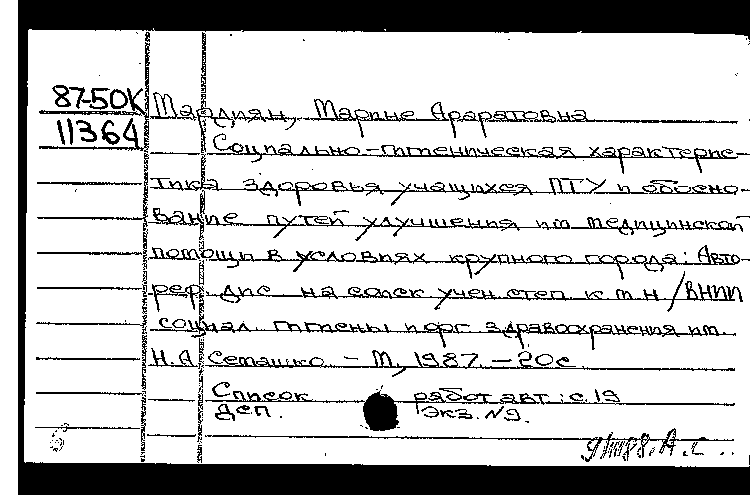 87-50К Мардиян, Марине Араратовна
11364 Социально-гигиеническая характерис-
тика здоровья учащихся ПТУ и обосно-
вание путей улучшения им медицинской
помощи в условиях крупного города: Авто-
реф. дис на соиск учен. степ к. м. н /ВНИИ
социал. гигиены и орг. здравоохранения им.
Н.А Семашко. - М, 1987. - 20с
Список работ авт.: с. 19
Деп. Экз. №9.